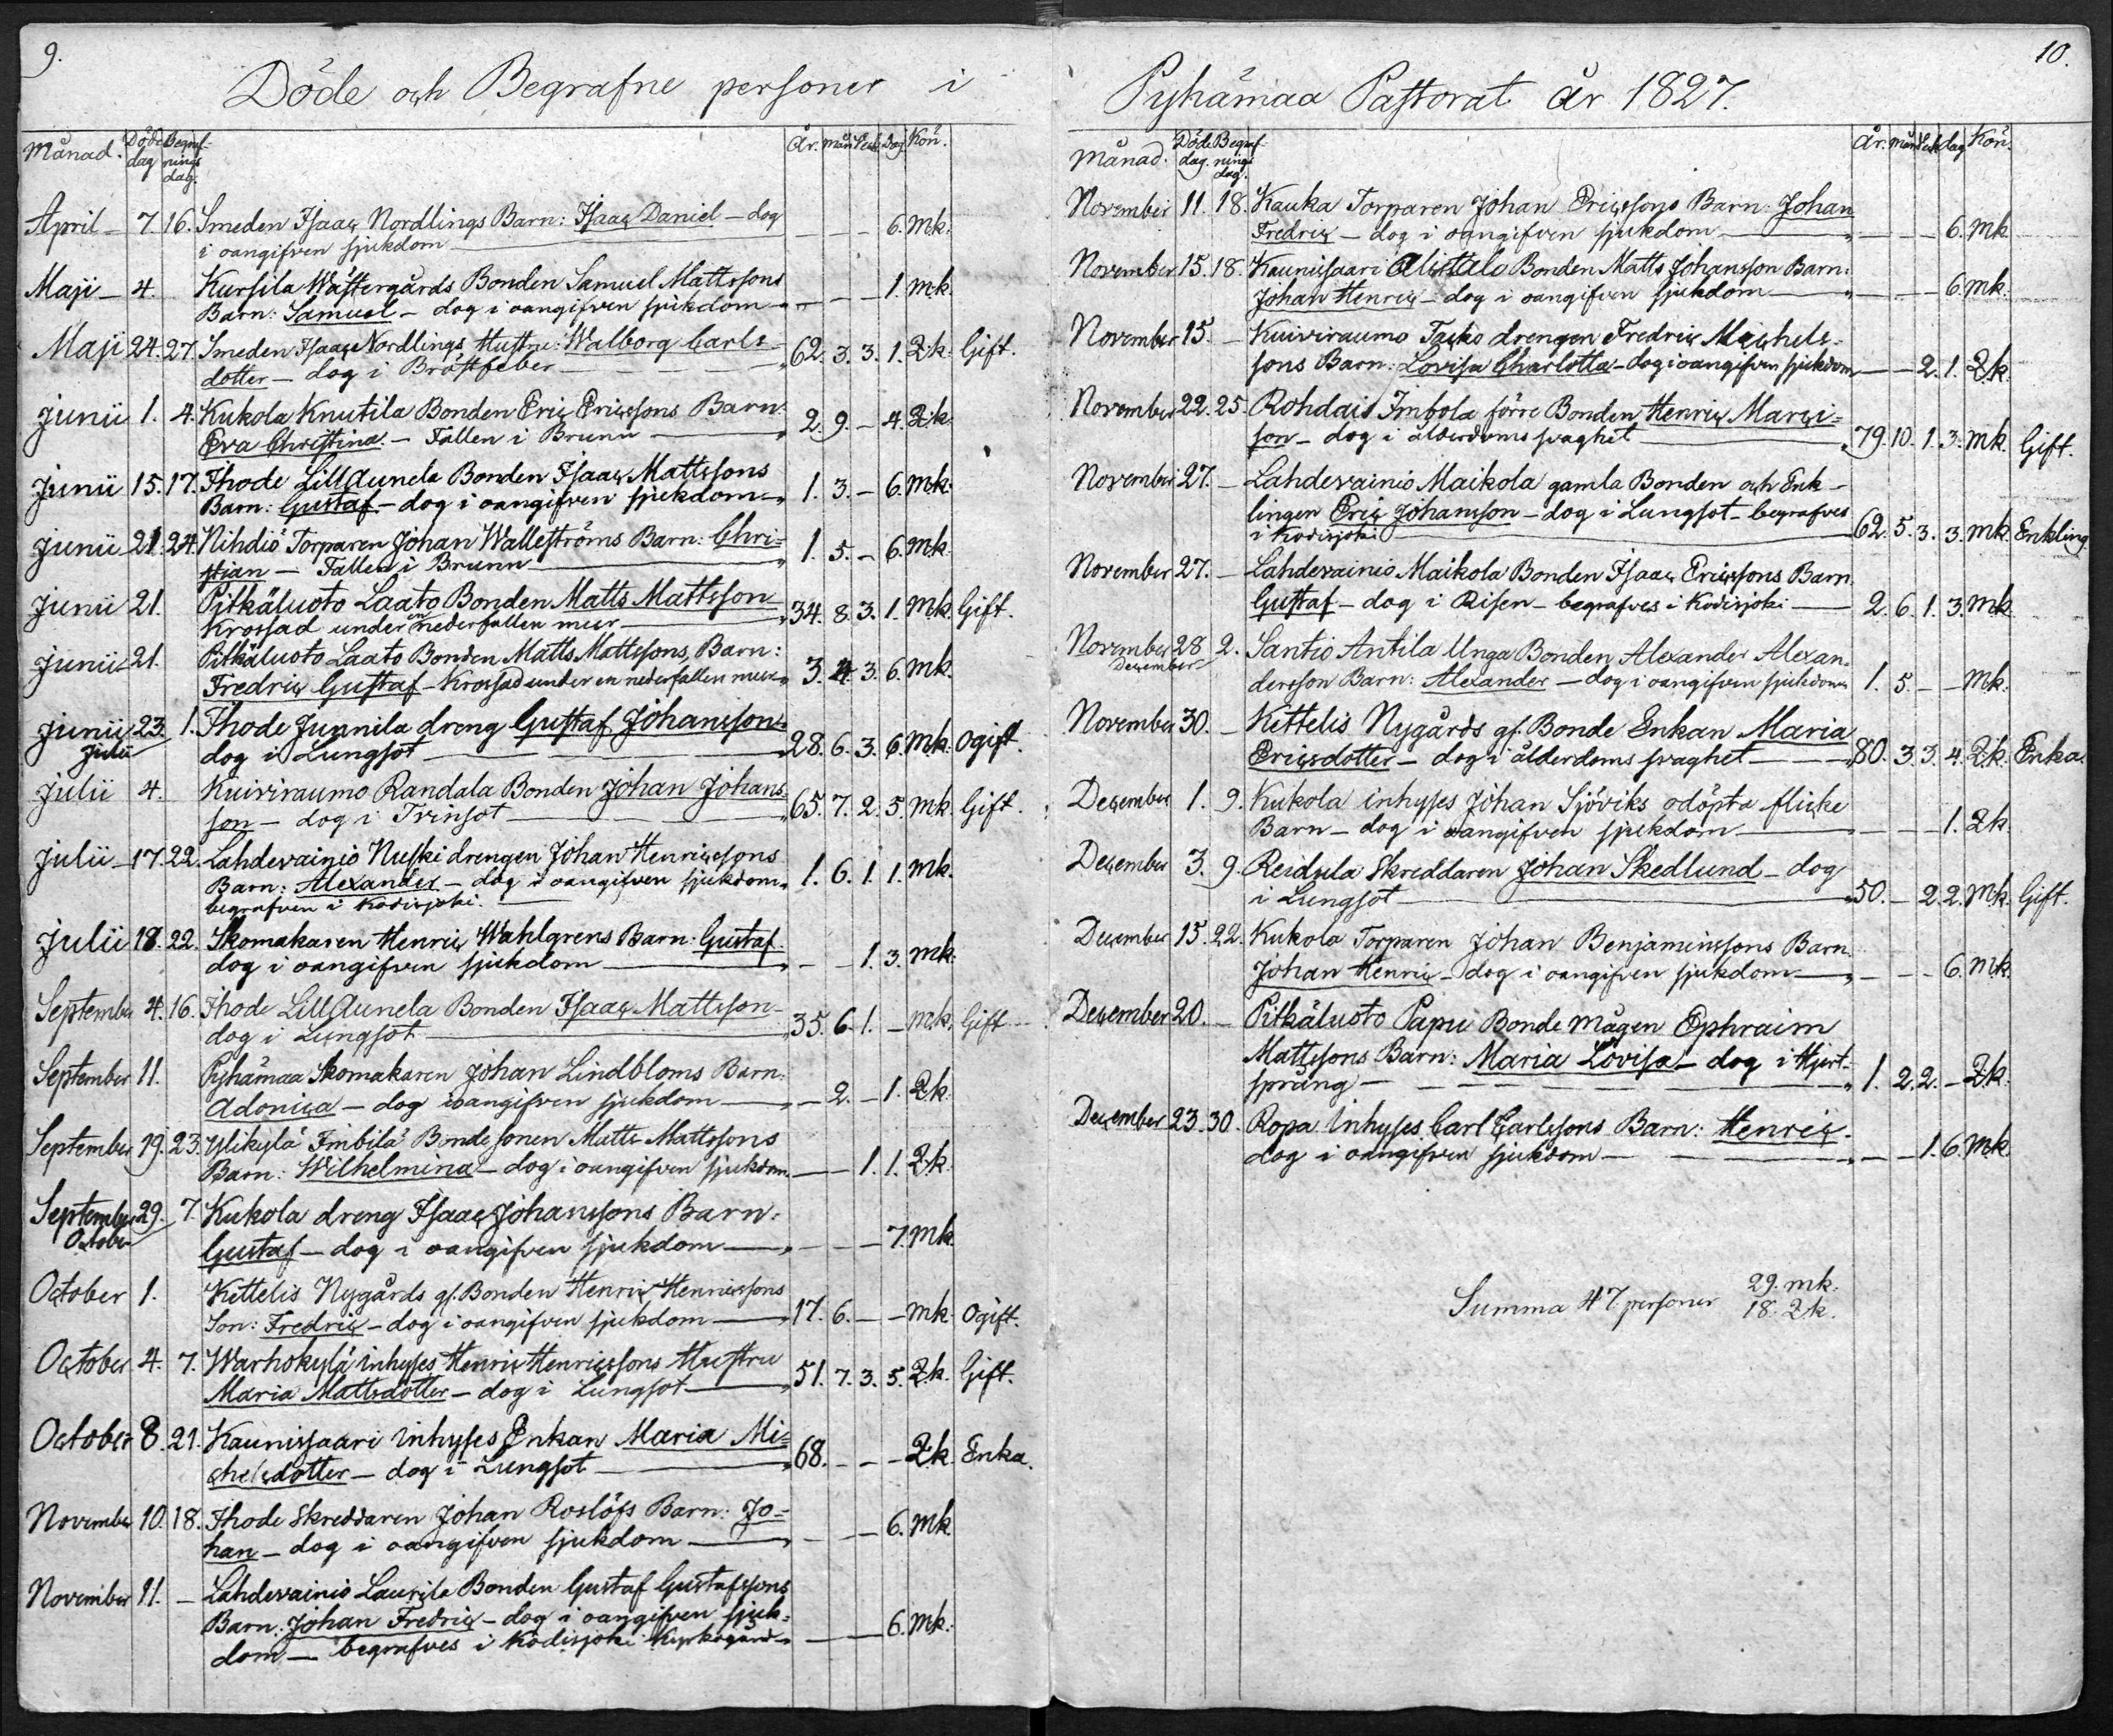 9.
Döde och Begrafne personer i
Månad. Döde dag Begrafnings dag. År. mån Veck Dag Kön.
April 7. 16. Smeden Isaac Nordlings Barn: Isaac Daniel — dog
i oangifven sjukdom — — — — 6. Mk.
Maji 4. Kursila Wästergårds Bonden Samuel Mattssons
Barn: Samuel — dog i oangifven sjukdom — — — 1. mk.
Maji 24. 27. Smeden Isaac Nordlings Hustru: Walborg Carls-
dotter — dog i Bröstfeber — 62. 3. 3. 1. Qk. Gift.
Junii 1. 4. Kukola Knutila Bonden Eric Ericssons Barn:
Eva Christina. — Fallen i Brunn — 2. 9. — 4. Qk.
Junii 15. 17. Ihode LillAunela Bonden Isaac Mattssons
Barn: Gustaf — dog i oangifven sjukdom — 1. 3. — 6. Mk.
Junii 21. 24. Nihdiö Torparen Johan Walleströms Barn: Chri-
stian — Fallen i Brunn — 1. 5. — 6. Mk.
Junii 21. Pitkäluoto Laato Bonden Matts Mattsson
Krossad under en nederfallen mur — 34. 8. 3. 1. Mk. Gift.
Junii 21. Pitkäluoto Laato Bonden Matts Mattssons, Barn:
Fredric Gustaf — Krossad under en nederfallen mur 3. 4. 3. 6. Mk.
Junii 23. 1. Ihode Junnila dreng Gustaf Johansson-
Julii dog i Lungsot — 28. 6. 3. 6. Mk. Ogift.
Julii 4. Kuiviraumo Randala Bonden Johan Johans-
son — dog i Trinsot — 65. 7. 2. 5. Mk. Gift.
Julii 17. 22. Lahdevainio Nuski drengen Johan Henricssons
Barn: Alexander — dog i oangifven sjukdom 1. 6. 1. 1. Mk.
begrafven i Kodisjoki.
Julii 18. 22. Skomakaren Henric Wahlgrens Barn: Gustaf
dog i oangifven sjukdom — — — 1. 3. Mk.
September 4. 16. Ihode LillAunela Bonden Isaac Mattsson-
dog i Lungsot — 35. 6. 1. — Mk. Gift
September 11. Pyhämaa Skomakaren Johan Lindbloms Barn:
Adonica — dog i oangifven sjukdom — — 2. — 1. Qk.
September 19. 23. Ylikylä Imbilä Bondesonen Matts Mattssons
Barn: Wilhelmina — dog i oangifven sjukdom — — 1. 1. Qk.
September 29. 7. Kukola dreng Isaac Johanssons Barn:
October Gustaf — dog i oangifven sjukdom — — — — 7. Mk.
October 1. Kittelis Nygårds gl. Bonden Henric Henricssons
Son: Fredric — dog i oangifven sjukdom — 17. 6. — — Mk. Ogift.
October 4. 7. Warhokylä inhyses Henric Henricssons Hustru
Maria Mattsdotter — dog i Lungsot — 51. 7. 3. 5. Qk. Gift.
October 8. 21. Kaunissaari inhyses Enkan Maria Mi-
chelsdotter — dog i Lungsot — 68. — — — Qk. Enka.
November 10. 18. Ihode Skreddaren Johan Roslöfs Barn: Jo-
han — dog i oangifven sjukdom — — — 6. Mk.
November 11. — Lahdevainio Laurila Bonden Gustaf Gustafssons
Barn: Johan Fredric — dog i oangifven sjuk-
dom — begrafves i Kodisjoki Kyrkogård — — — 6. Mk.
10.
Pyhämaa Pastorat år 1827.
Månad. Döde dag. Begrafnings dag. År. mån Veck dag Kön.
November 11. 18. Kauka Torparen Johan Ericssons Barn: Johan
Fredric — dog i oangifven sjukdom — — — 6. Mk.
November 15. 18. Kaunissaari Alistalo Bonden Matts Johansson Barn:
Johan Henric — dog i oangifven sjukdom — — — 6. Mk.
November 15. — Kuiviraumo Tacko drengen Fredric Michels-
sons Barn: Lovisa Charlotta — dog i oangifven sjukdom — — 2. 1. Qk.
November 22. 25. Rohdais Imbola förre Bonden Henric Marci-
son — dog i ålderdoms svaghet — 79. 10. 1. 3. Mk. Gift.
November 27. — Lahdevainio Maikola gamla Bonden och Enk-
lingen Eric Johansson — dog i Lungsot — begrafves
i Kodisjoki — 62. 5. 3. 3. Mk. Enkling
November 27. — Lahdevainio Maikola Bonden Isaac Ericssons Barn
Gustaf — dog i Risen — begrafves i Kodisjoki — 2. 6. 1. 3. Mk.
November 28 2. Santio Antila Unga Bonden Alexander Alexan-
December dersson Barn: Alexander — dog i oangifven sjukdom 1. 5. — — Mk.
November 30. — Kittelis Nygårds gl. Bonde Enkan Maria
Ericsdotter — dog i ålderdoms svaghet — 80. 3. 3. 4. Qk. Enka.
December 1. 9. Kukola inhyses Johan Sjöviks odöpta flicke
Barn — dog i oangifven sjukdom — — — 1. Qk.
December 3. 9. Reidula Skreddaren Johan Skedlund — dog
i Lungsot — 50. — 2. 2. Mk. Gift.
December 15. 22. Kukola Torparen Johan Benjaminssons Barn
Johan Henric — dog i oangifven sjukdom — — — 6. Mk.
December 20. — Pitkäluoto Papu Bonde Mågen Ephraim
Mattssons Barn: Maria Lovisa — dog i Hjert-
språng — 1. 2. 2. — Qk.
December 23. 30. Ropa Inhyses Carl Carlssons Barn: Henric-
dog i oangifven sjukdom — — — 1. 6. Mk.
Summa 47 personer 29. mk.
18. Qk.